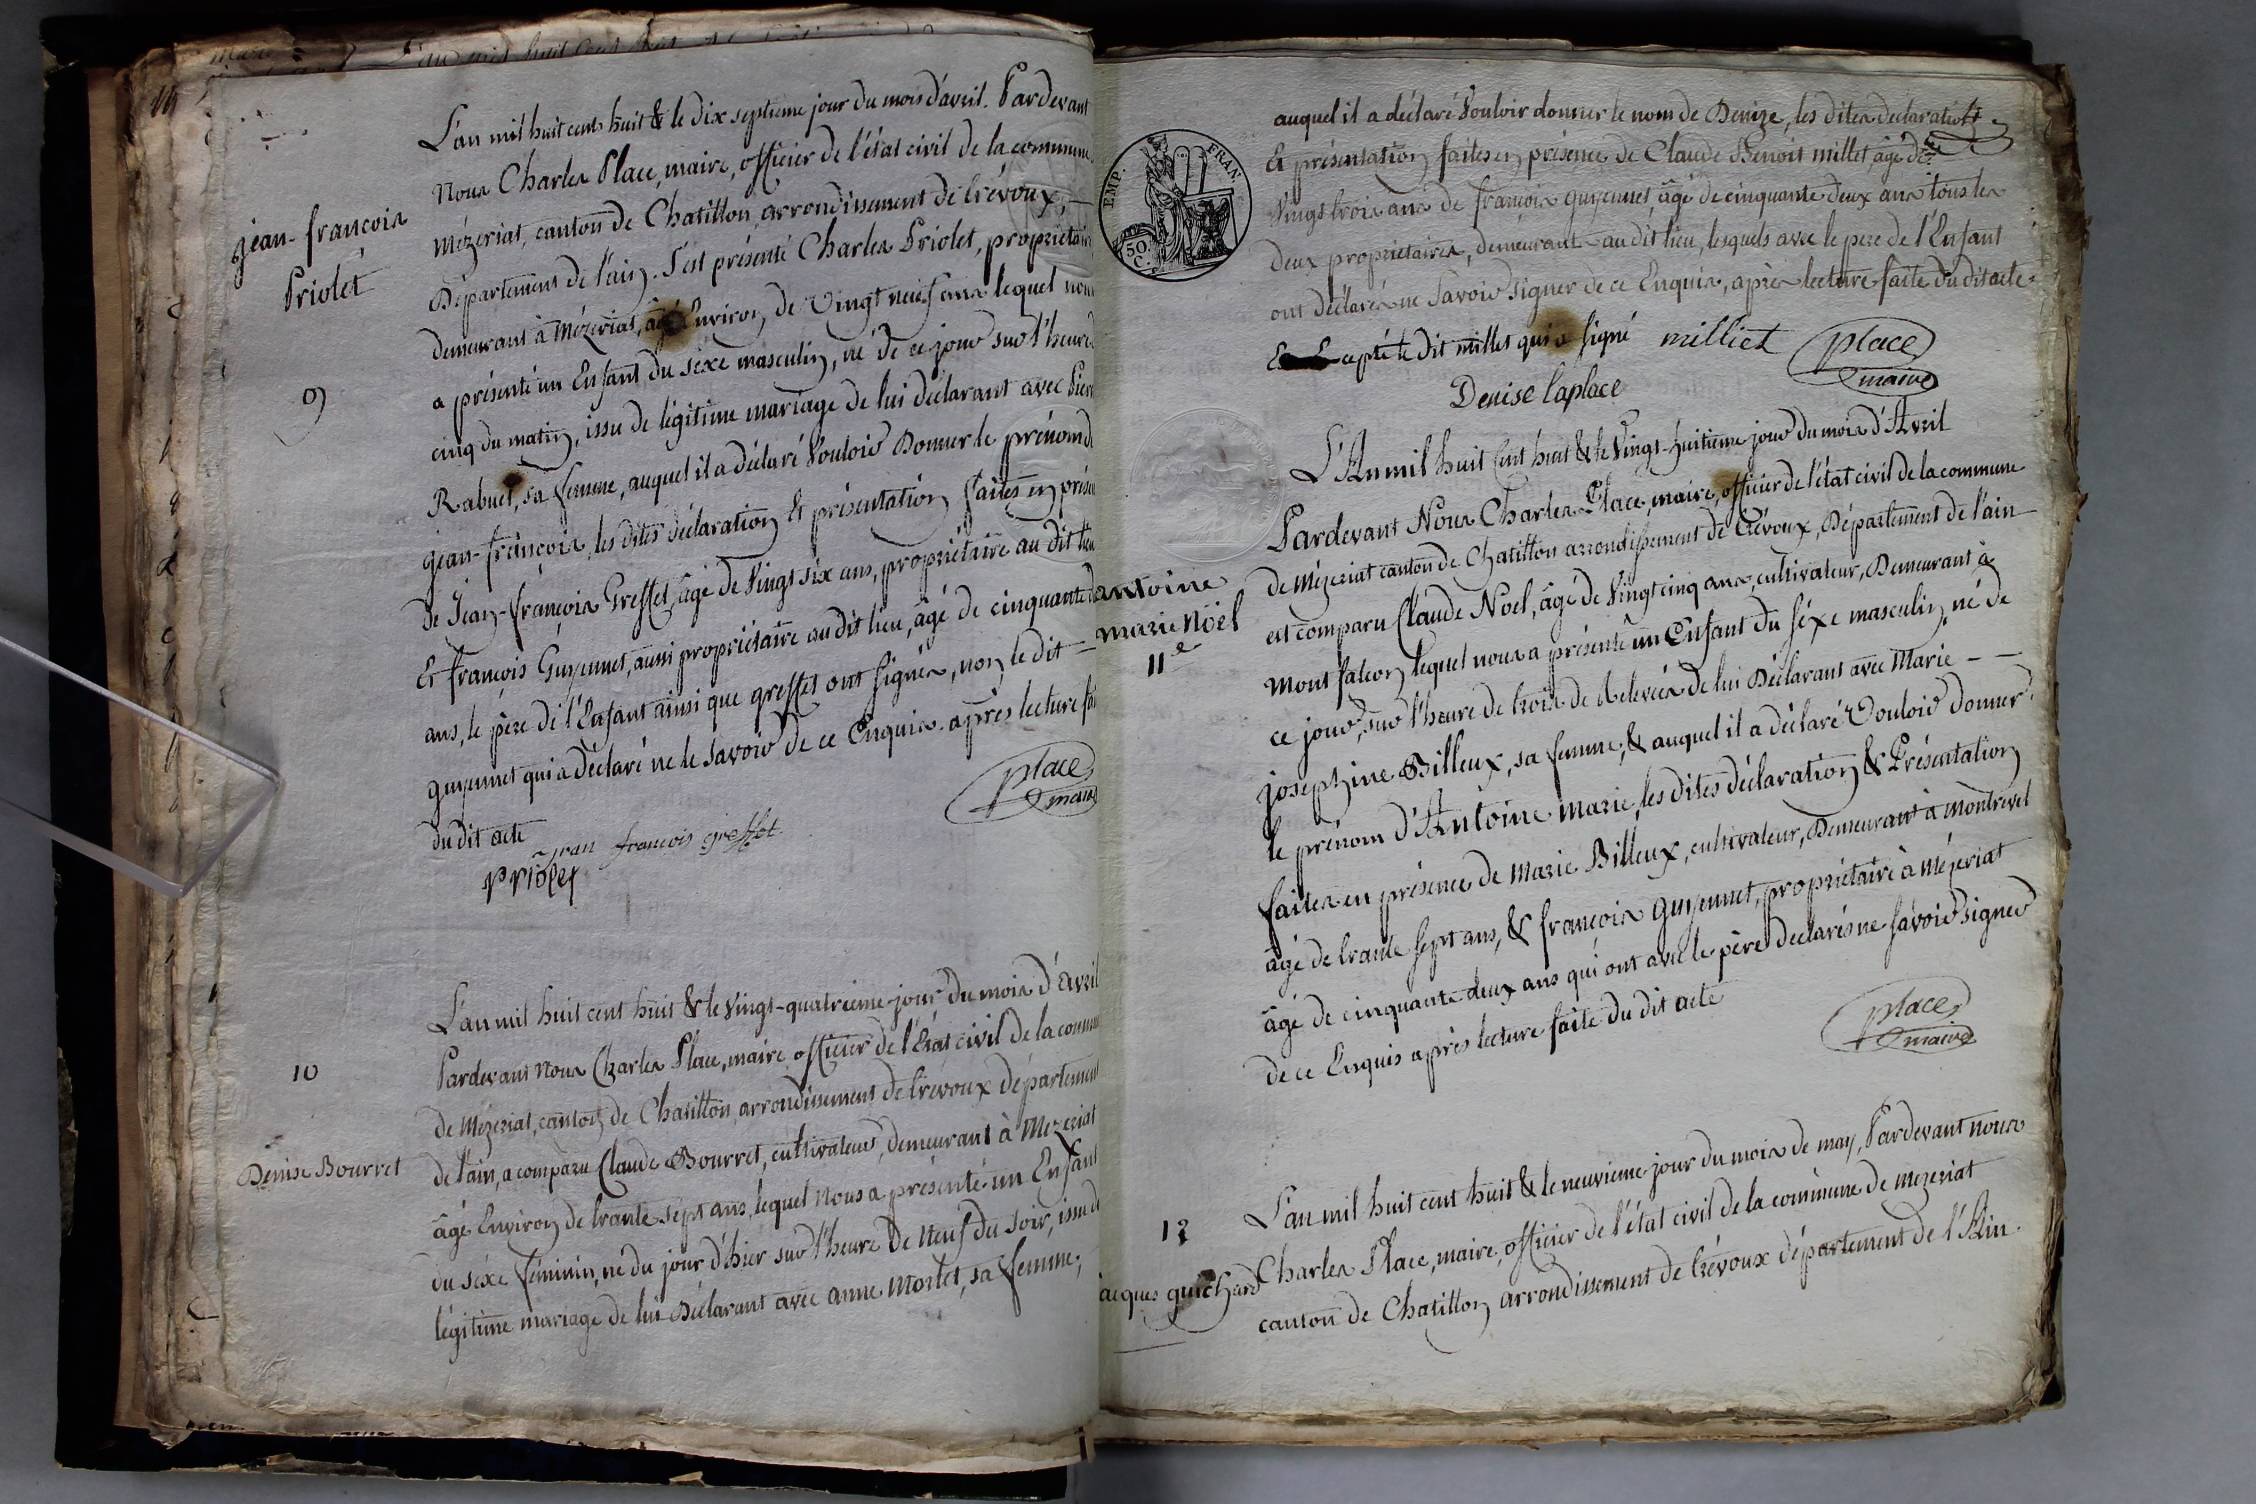 jean-francois
Priolet
9
L'an mil huit cent huit & le dix septieme jour du mois d'avril. Pardevant
Nous Charles Place, maire, officier de l'état civil de la commune
Mézeriat, canton de Chatillon, arrondissement de Trévoux,
Département de l'ain. S'est présenté Charles Priolet, propriétaire
demeurant à Mézeriat, âgé Environ de Vingt neuf ans lequel nous
a présenté un Enfant du séxe masculin, né de ce jour sur l'heure
cinq du matin, issu de légitime mariage de lui déclarant avec
Rabuel, sa femme, auquel il a déclaré Vouloir Donner le prénom d
jean-françois, les dites déclaration Et présentation faites en présen
De Jean-françois Greffet, âgé de Vingt six ans, propriétaire au dit lieu
Et françois Guyennet, aussi propriétaire au dit lieu, âgé de cinquante d
ans, le père de l'Enfant ainsi que greffet ont signés, non le dit
guyennet qui a déclaré ne le savoir de ce Enquis. après lecture f
du dit acte
place
maire
jean francois greffet
Priolet
10
Denise Bourret
L'an mil huit cent huit & le Vingt-quatrieme jour du mois d'Avril
Pardevant Nous Charles Place, maire officier de l'Etat civil de la comm
de Mézeriat, canton de Chatillon, arrondissement de Trévoux département
de l'ain, a comparu Claude Bourret, cultivateur, demeurant à Mezeriat
âgé Environ de trante sept ans, lequel Nous a présenté un Enfant
du séxe féminin, né du jour d'hier sur l'heure de Neuf du soir, issu d
légitime mariage de lui Déclarant avec anne Morlet, sa femme,
EMP. FRAN.
50.
C.
auquel il a déclaré Vouloir donner le nom de Denize, les dites Declarations
Et présentation faites en présence de Claude Benoit millet, âgé de
Vingt trois ans de françois guyennet, âgé de cinquante deux ans tous les
deux propriétaires, demeurant au dit lieu, lesquels avec le pere de l'Enfant
ont déclarés ne Savoir signer de ce Enquis, après lecture faite du dit acte
cepté le dit millet qui a signé milliet place
maire
Denise laplace
antoine
marie Noël
11e
L'An mil huit Cent huit & le Vingt-huitieme jour du mois d'Avril
Pardevant Nous Charles Place, maire, officier de l'état civil de la commune
de Mézeriat canton de Chatillon arrondissement de Trévoux, Département de l'ain
est comparu Claude Noel, âgé de Vingt cinq ans, cultivateur, Demeurant à
Montfalcon lequel nous a présenté un Enfant du séxe masculin né de
ce jour, sur l'heure de trois de Relevée de lui Déclarant avec Marie
josephine Billeux, sa femme, & auquel il a déclaré Vouloir donner
le prénom d'Antoine Marie, les dites déclaration & Présentation
faites en présence de Marie Billeux, cultivateur, Demeurant à Montrevel
âgé de trante sept ans, & françois guyennet, propriétaire à Mézeriat
âgé de cinquante deux ans qui ont avec le père declarés ne savoir signer
de ce Enquis après lecture faite du dit acte
place
maire
12
jacques guichard
L'an mil huit cent huit & le neuvieme jour du mois de may, Pardevant nous
Charles Place, maire, officier de l'état civil de la commune de mezeriat
canton de Chatillon arrondissement de Trévoux département de l'Ain.